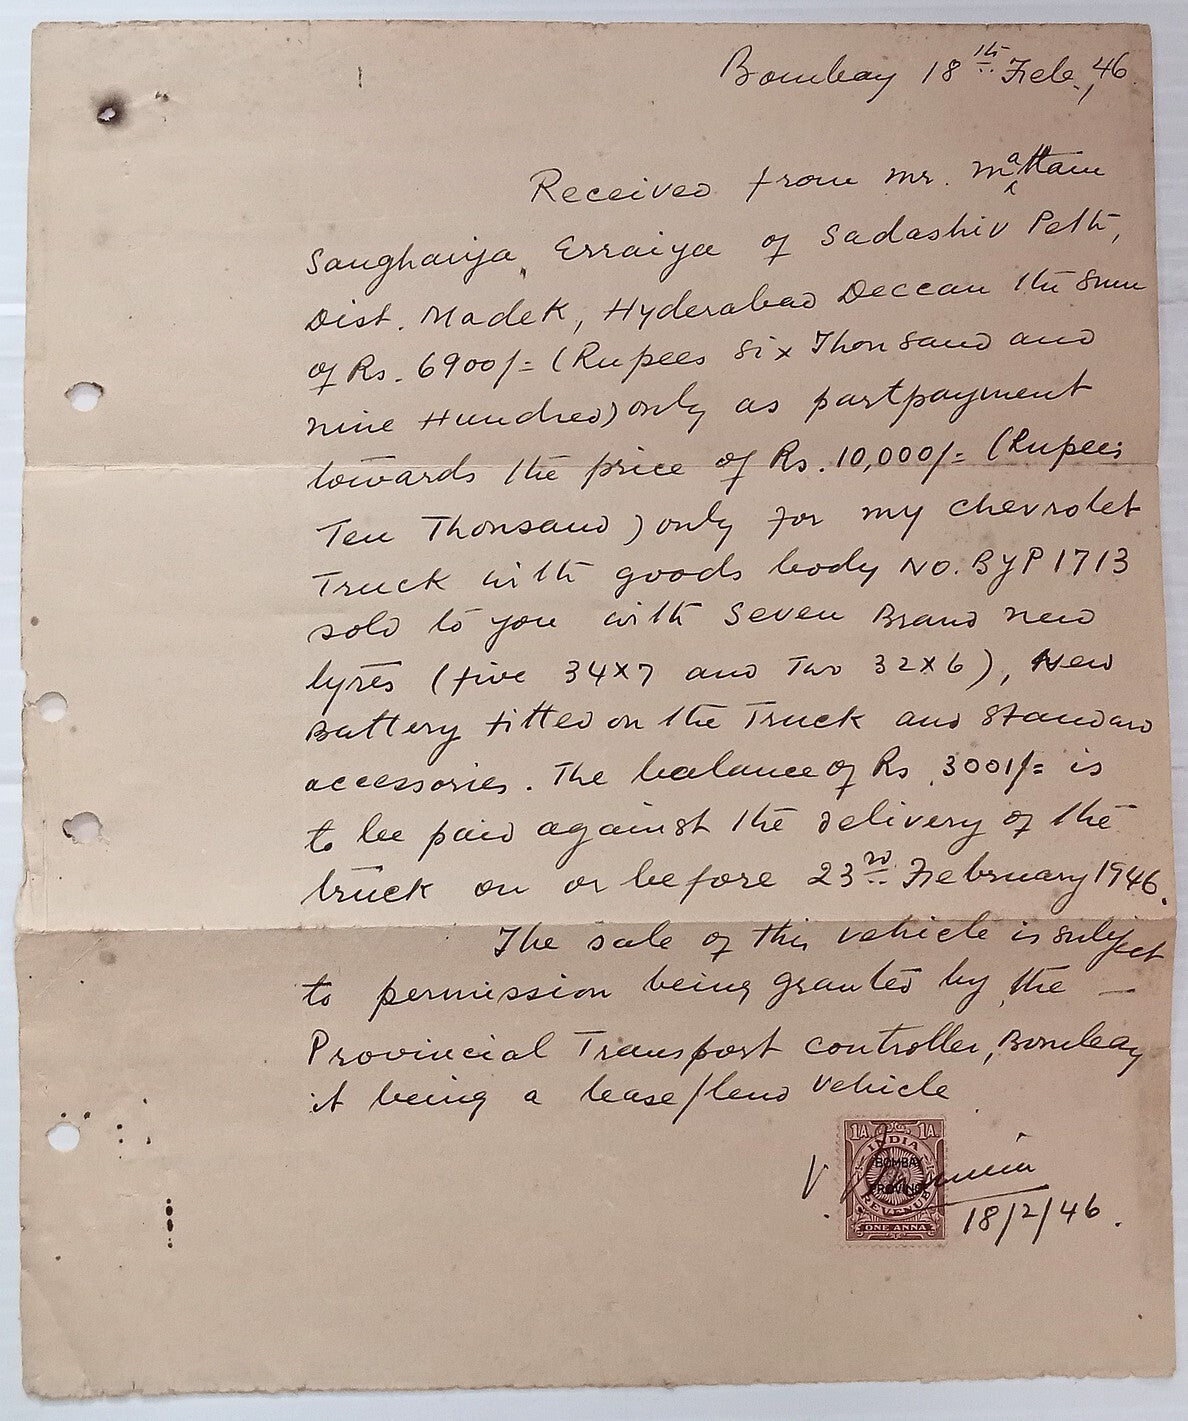 Bombay 18th Feb., 46
Received from Mr. Mattam
Sanghaiya Erraiya of Sadashiv Peth,
Dist. Madek, Hyderabad Deccan the sum
of Rs. 6900/= (Rupees Six Thousand and
nine Hundred) only as part payment
towards the price of Rs. 10,000/= (Rupees
Ten Thousand) only for my chevrolet
Truck with goods body No. BYP 1713
sold to you with Seven Brand new
tyres (five 34x7 and Two 32x6), New
Battery fitted on the Truck and Standard
accessories. The balance of Rs 3001/= is
to be paid against the delivery of the
truck on or before 23rd February 1946.
The sale of this vehicle is subject
to permission being granted by the —
Provincial Transport controller, Bombay
it being a lease/lend vehicle
1A. INDIA 1A.
BOMBAY
PROVINCE
REVENUE
ONE ANNA
V.
18/2/46.